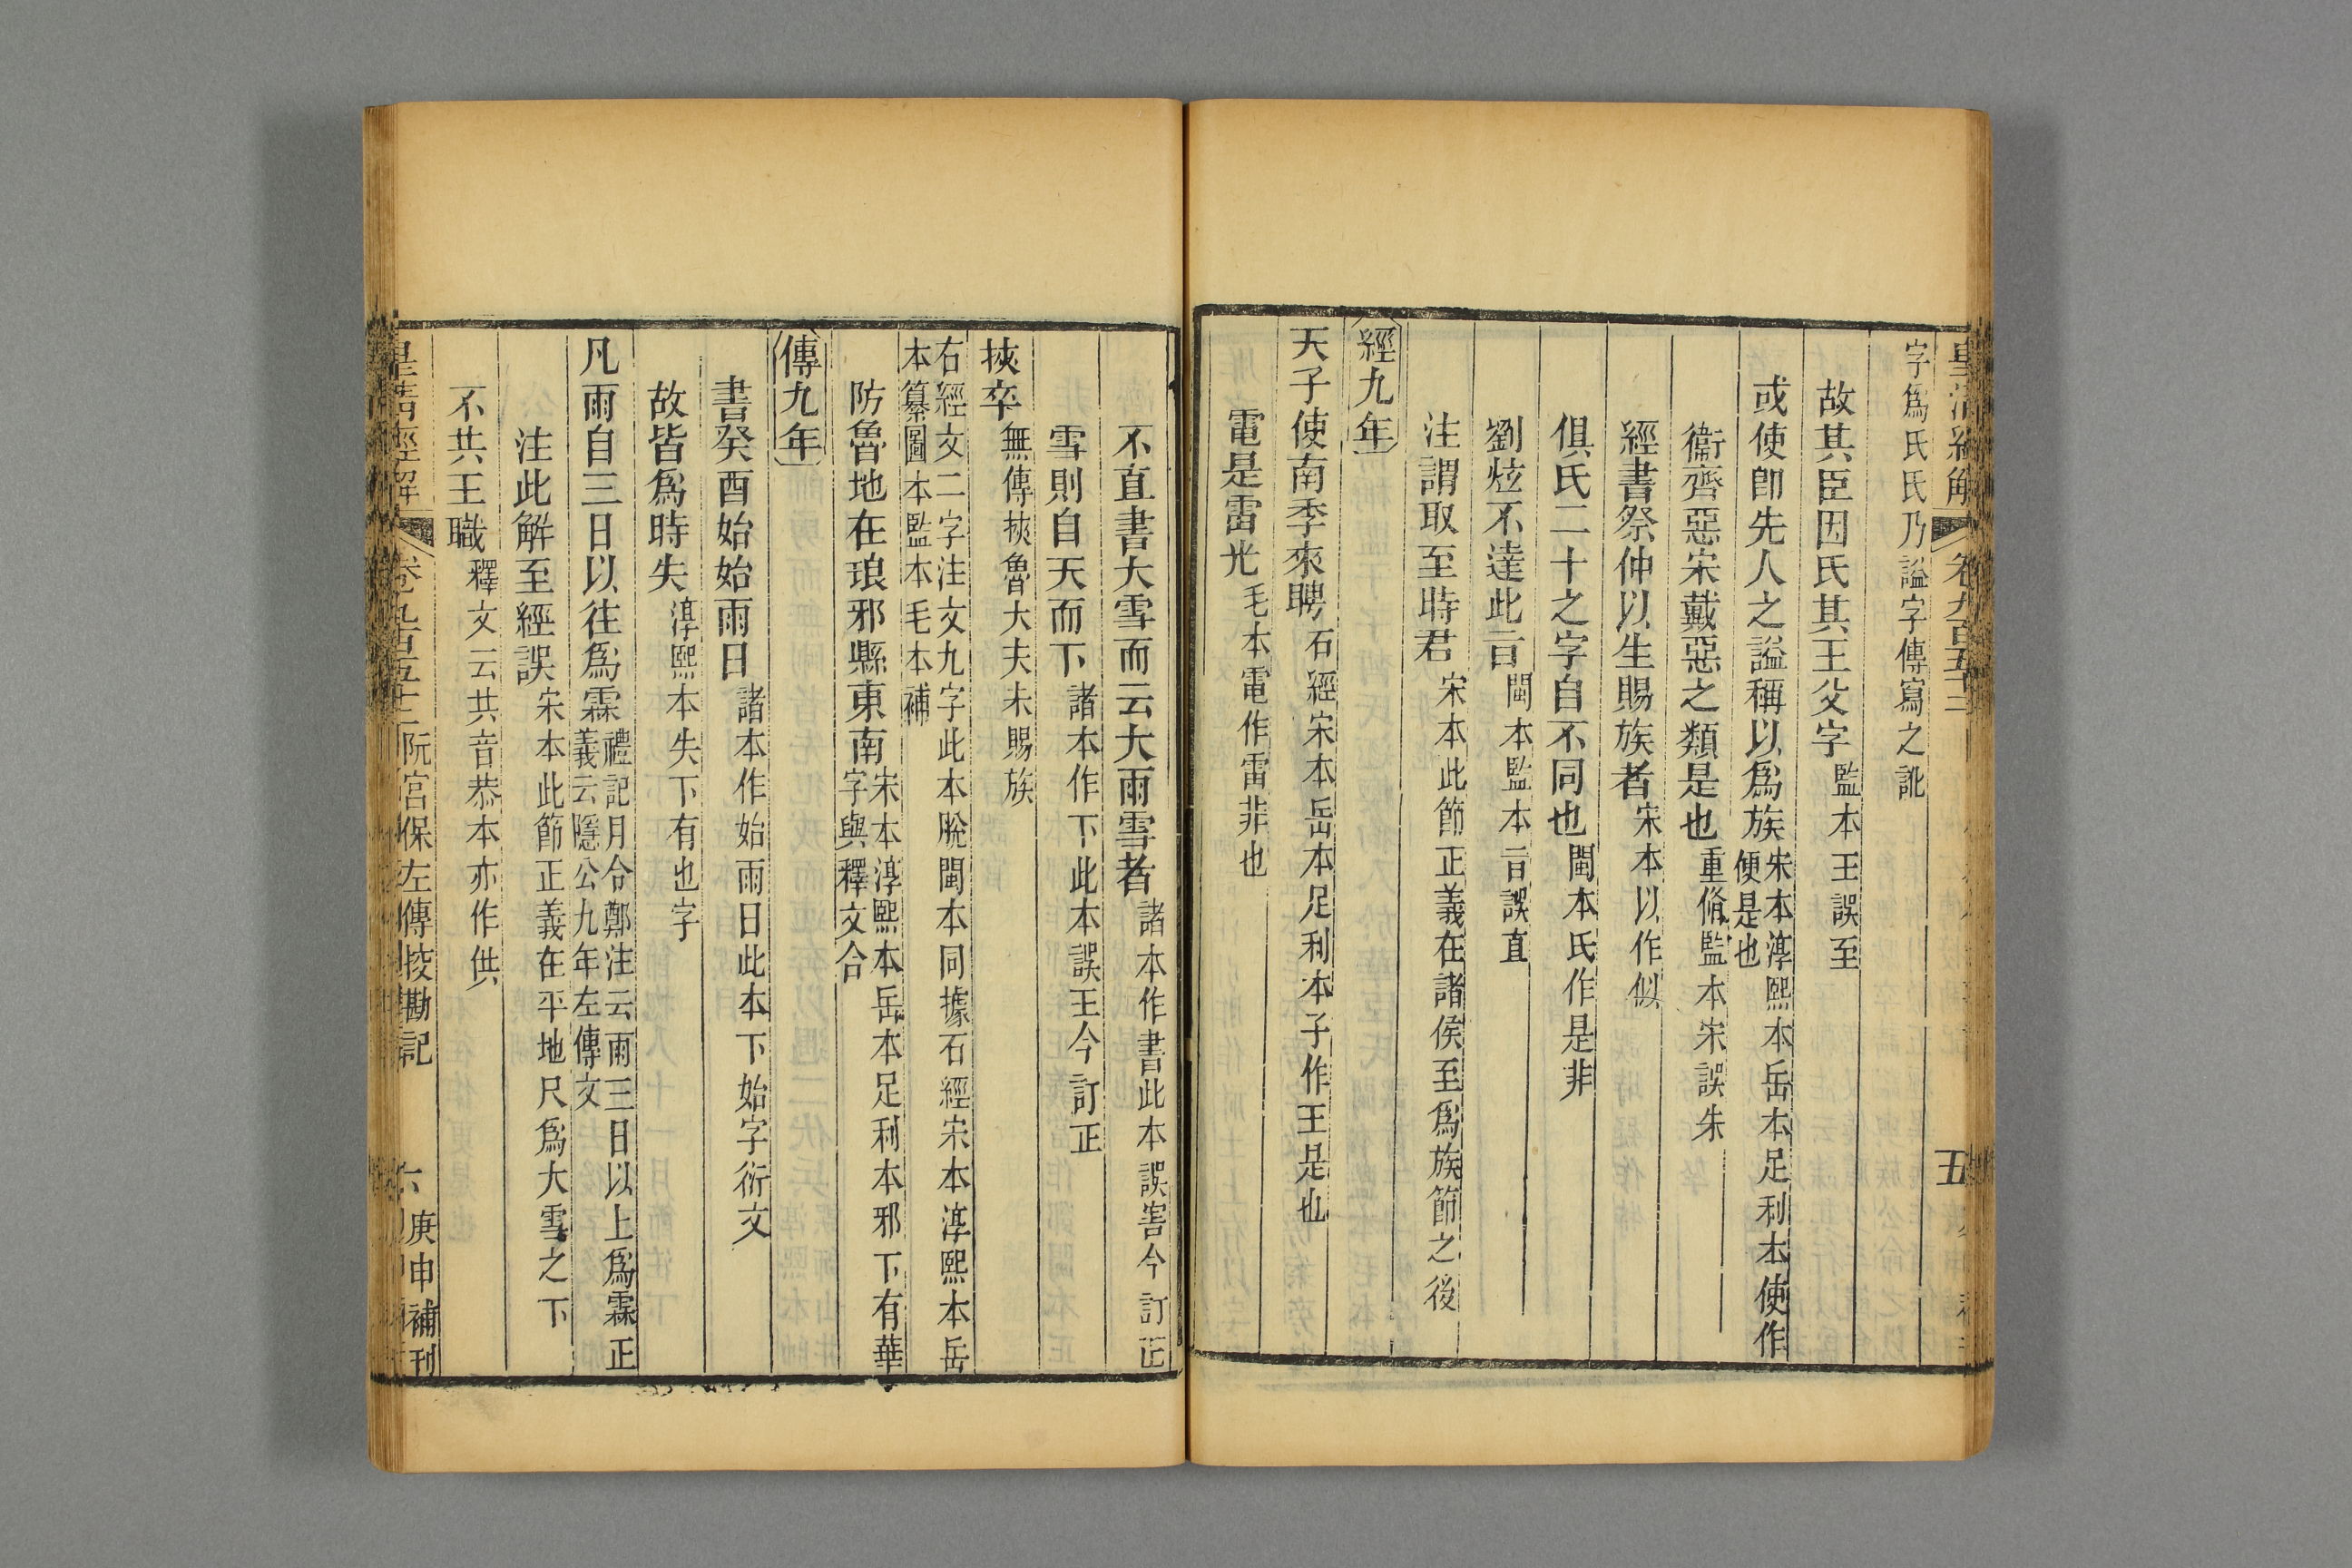 皇清經解
卷九百五十二
五
字爲氏氏乃謚字傳寫之訛
故其臣因氏其王父字監本王誤至
或使卽先人之謚稱以爲族宋本淳熙本岳本足利本使作便是也
衞齊惡宋戴惡之類是也重脩監本宋誤朱
經書祭仲以生賜族者宋本以作似
俱氏二十之字自不同也閩本氏作是非
劉炫不達此言閩本監本言誤直
注謂取至時君宋本此節正義在諸侯至爲族節之後
經九年
天子使南季來聘石經宋本岳本足利本子作王是也
電是雷光毛本電作雷非也
不直書大雪而云大雨雪者諸本作書此本誤害今訂正
雪則自天而下諸本作下此本誤王今訂正
挾卒無傳挾魯大夫未賜族
右經文二字注文九字此本脫閩本同據石經宋本淳熙本岳
本纂圖本監本毛本補
防魯地在琅邪縣東南宋本淳熙本岳本足利本邪下有華字與釋文合
傳九年
書癸酉始始雨日諸本作始雨日此本下始字衍文
故皆爲時失淳熙本失下有也字
凡雨自三日以往爲霖禮記月令鄭注云雨三日以上爲霖正義云隱公九年左傳文
注此解至經誤宋本此節正義在平地尺爲大雪之下
不共王職釋文云共音恭本亦作供
皇清經解
卷九百五十二
阮宮保左傳挍勘記
六
庚申補刊